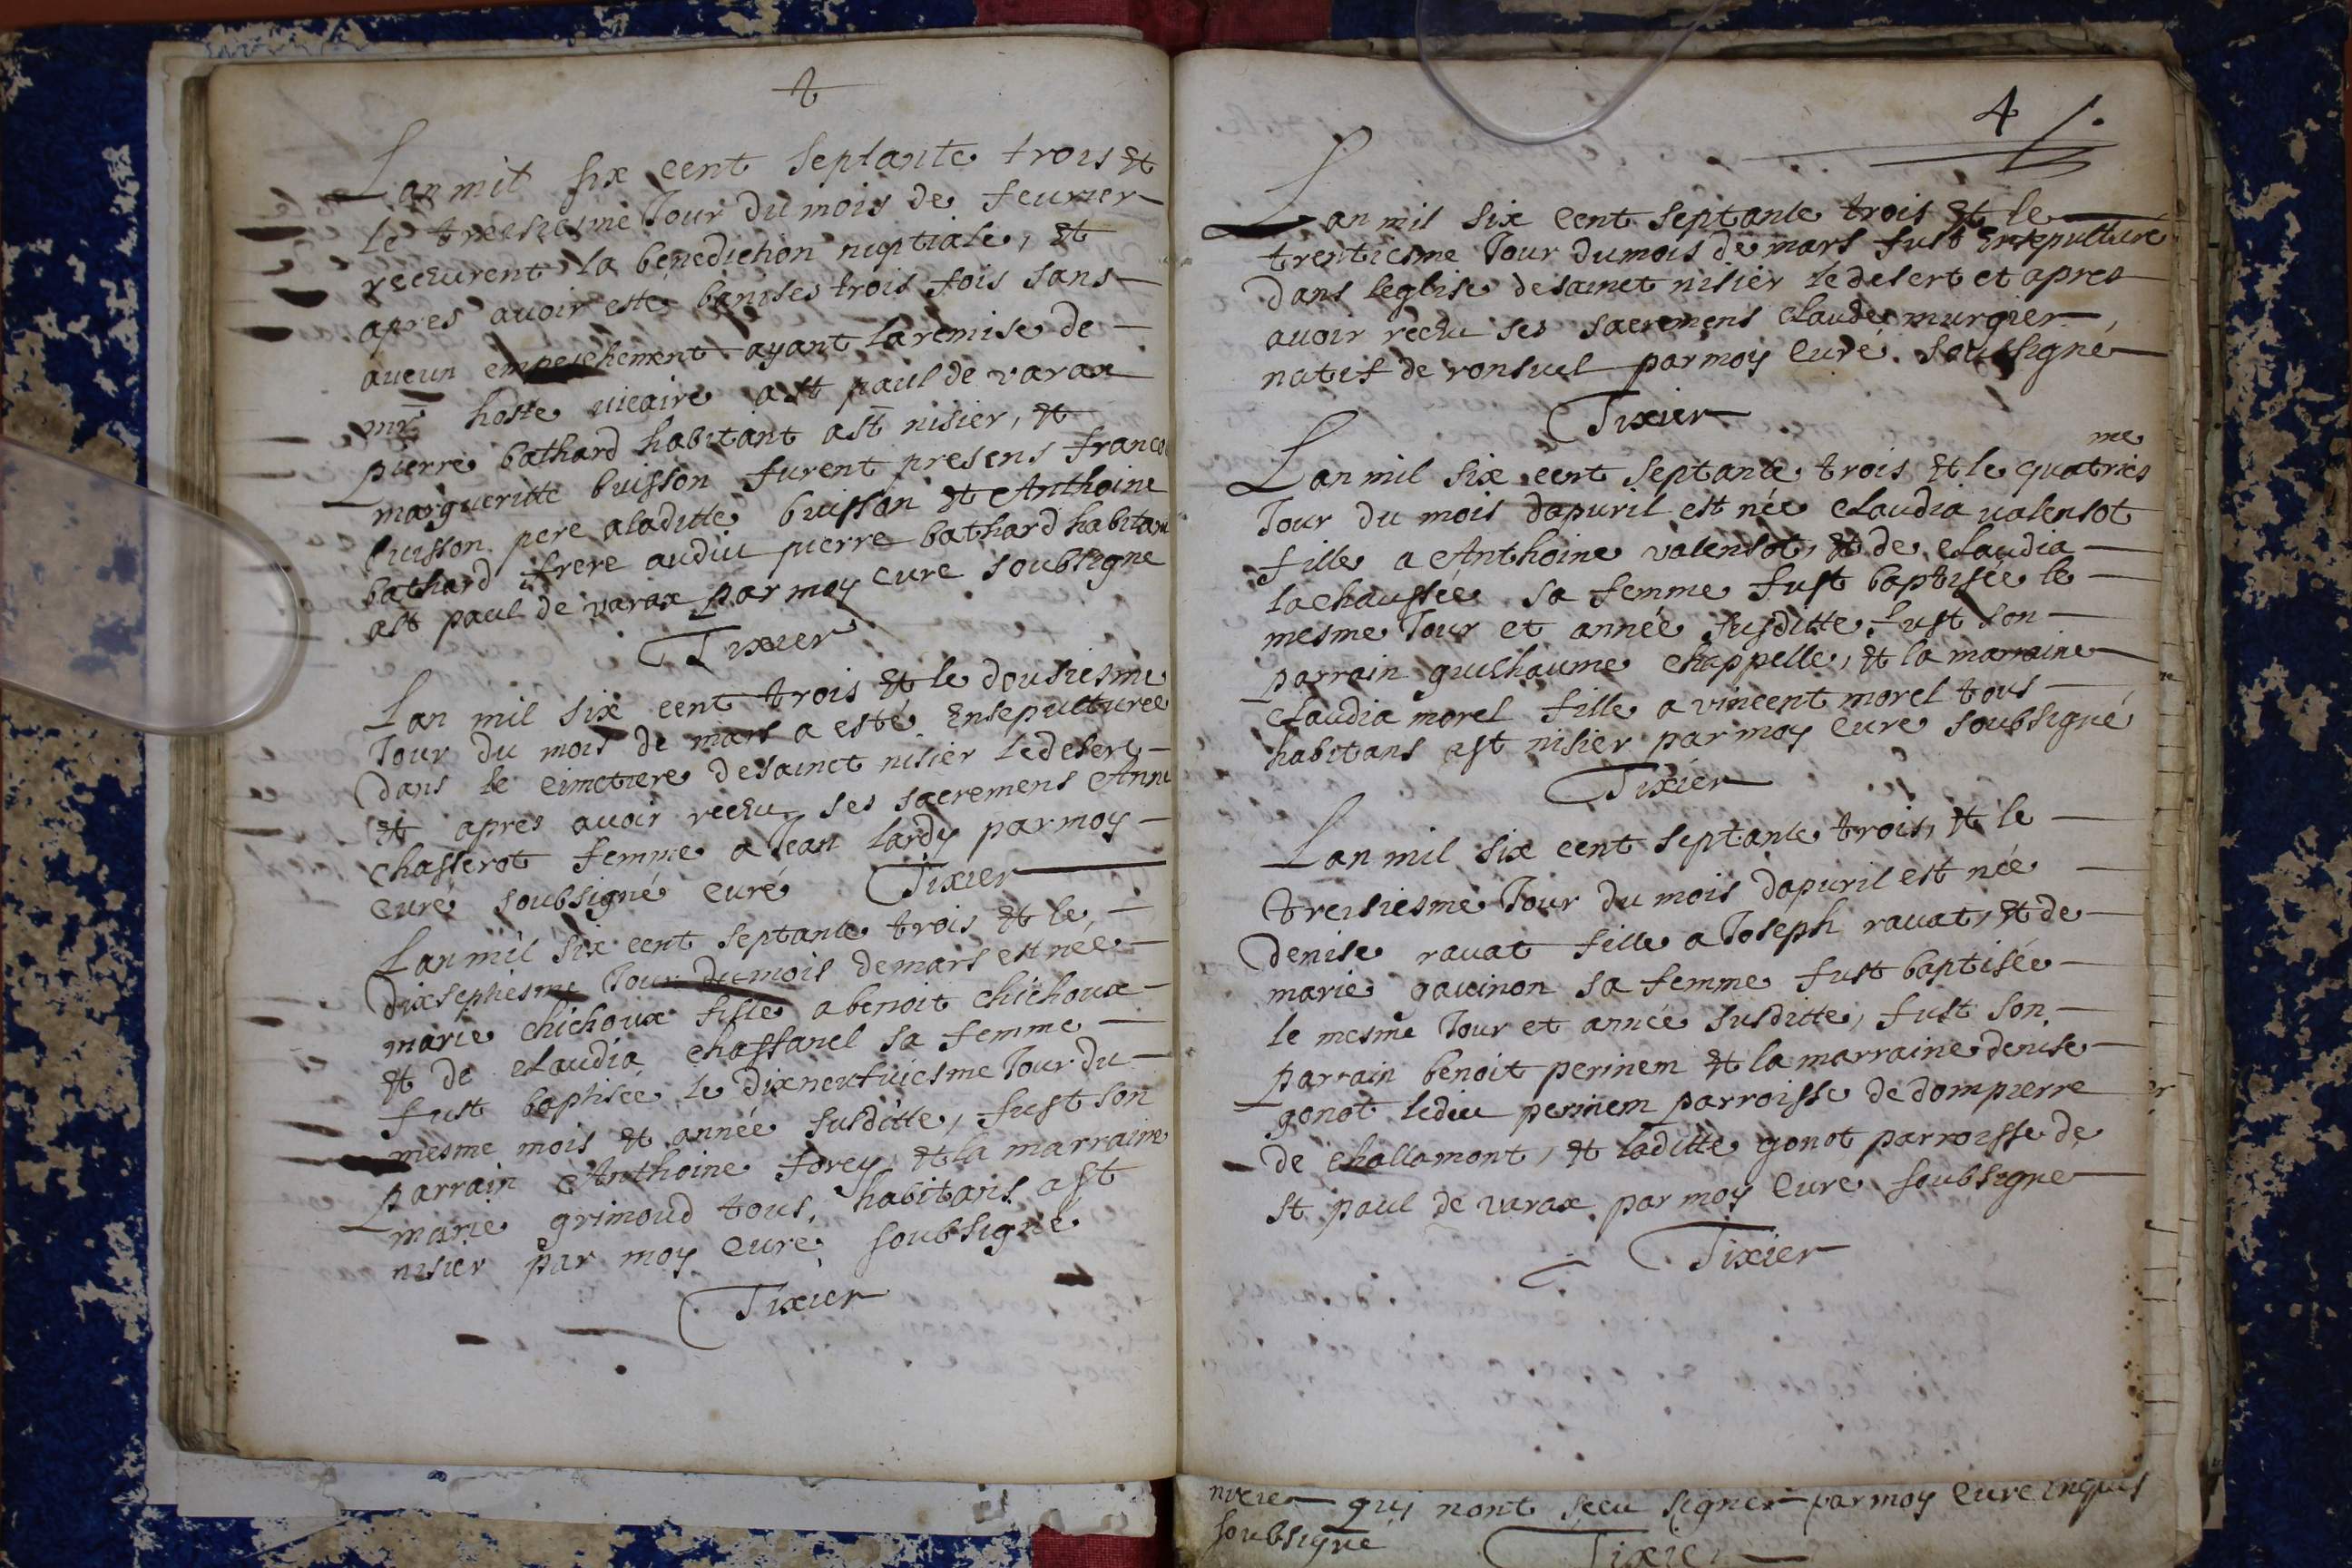 Lan mil six cent septante trois et
le treisiesme Jour du mois de feurier
recêurent la benediction nuptiale, et
apres auoir esté banises trois fois sans
aucun empeschement ayant la remise de
mr hoste uicaire a st paul de varax
pierre bathard habitant a st nisier, et
margueritte buisson furent presens franco
buisson pere a laditte buisson et Anthoine
bathard frere audiu pierre bathard habitan
a st paul de varax par moy cure soubsigne
Tixier
Lan mil six cent trois et le dousiesme
Jour du mois de mars a esté Ensepulturee
dans le cimetiere de sainct nisier le desert
et apres auoir recêu ses sacremens Anne
chasserot femme a Jean lardy par moy
curé soubsigné curé Tixier
Lan mil six cent septante trois et le
dixseptiesme Jour du mois de mars est née
marie chichoux fille a benoit chichoux
et de claudia chassanel sa femme
fust baptisée le dixneufuiesme Jour du
mesme mois et année susditte, fust son
parrain Anthoine forey et la marraine
marie grimoud tous habitans a st
nisier par moy curé soubsigné
Tixier
4
Lan mil six cent septante trois et le
trentiesme Jour du mois de mars fust Ensepulturé
dans leglise de sainct nisier le desert et apres
auoir recêu ses sacremens claude murgier
natif de ronsuel par moy curé soussigné
Tixier
me
Lan mil six cent septante trois et le quatries
Jour du mois dapuril est née claudia valensot
fille a Anthoine valensot, et de claudia
lachaussée sa femme fust baptisée le
mesme Jour et année susditte, fust son
parrain guilhaume chappelle, et la marraine
claudia morel fille a vincent morel tous
habitans a st nisier par moy curé soubsigné
Tixier
Lan mil six cent septante trois, et le
treisiesme Jour du mois dapuril est née
denise rauat fille a Joseph rauat, et de
marie gauinon sa femme fust baptisée
le mesme Jour et année susditte, fust son
parrain benoit perinem et la marraine denise
gonot lediu perinem parroisse de dompierre
de challamont, et laditte gonot parroisse de
st paul de varax par moy curé soubsigné
Tixier
quy nont sceu signer par moy curé
soubsigné
Tixier